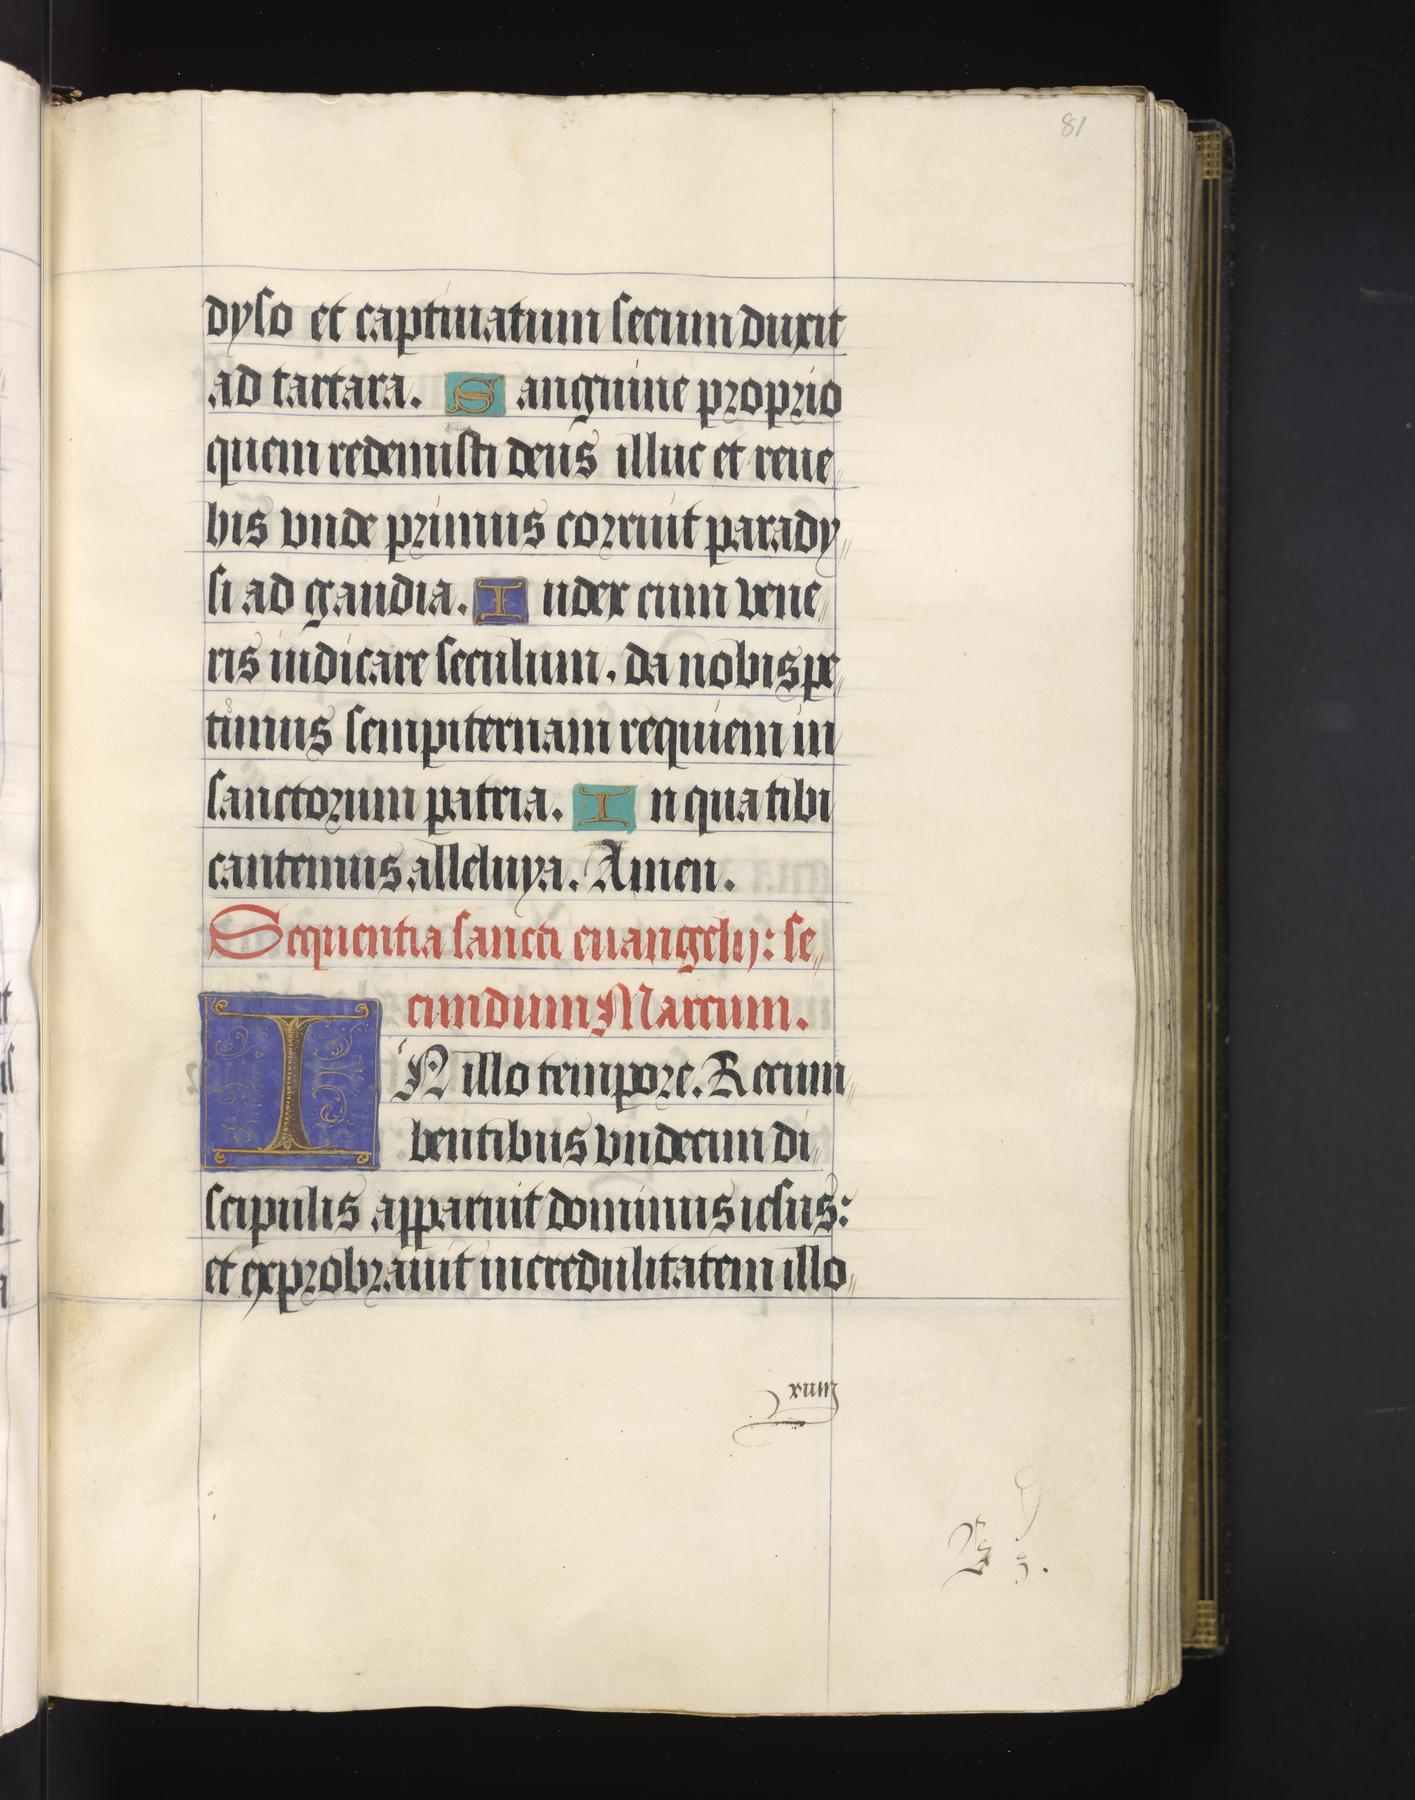 81
dyso et captiuatum secum duxit
ad tartara. Sanguine proprio
quem redemisti deus illuc et reue
his vnde primus corruit parady
si ad gaudia. Iudex cum vene
ris iudicare seculum. da nobis pe
timus sempiternam requiem in
sanctorum patria. In qua tibi
cantemus alleluya. Amen.
Sequentia sancti euangelij: se
cundum Marcum.
IN illo tempore. Recum
bentibus vndecim di
scipulis apparuit dominus iesus:
et exprobrauit incredulitatem illo